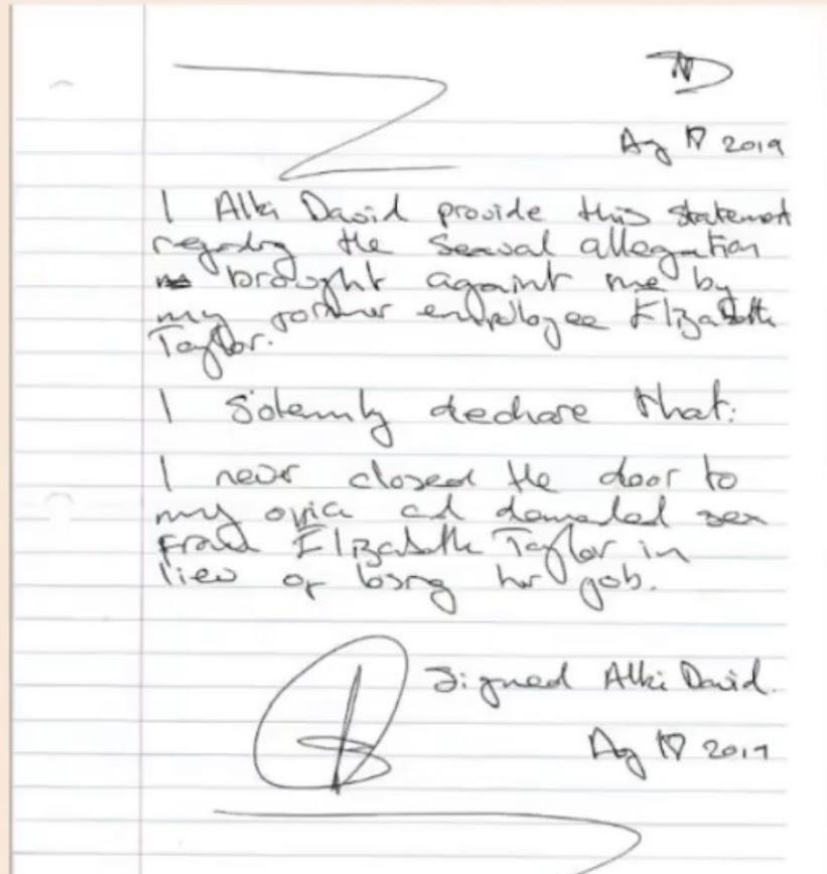 Aug 2019
I Alki David provide this statement
regarding the Sexual allegation
brought against me by
my former employee Elizabeth
Taylor.
I Solemnly declare that:
I never closed the door to
my office and demanded sex
from Elizabeth Taylor in
lieu of losing her job.
Signed Alki David.
Aug 2019